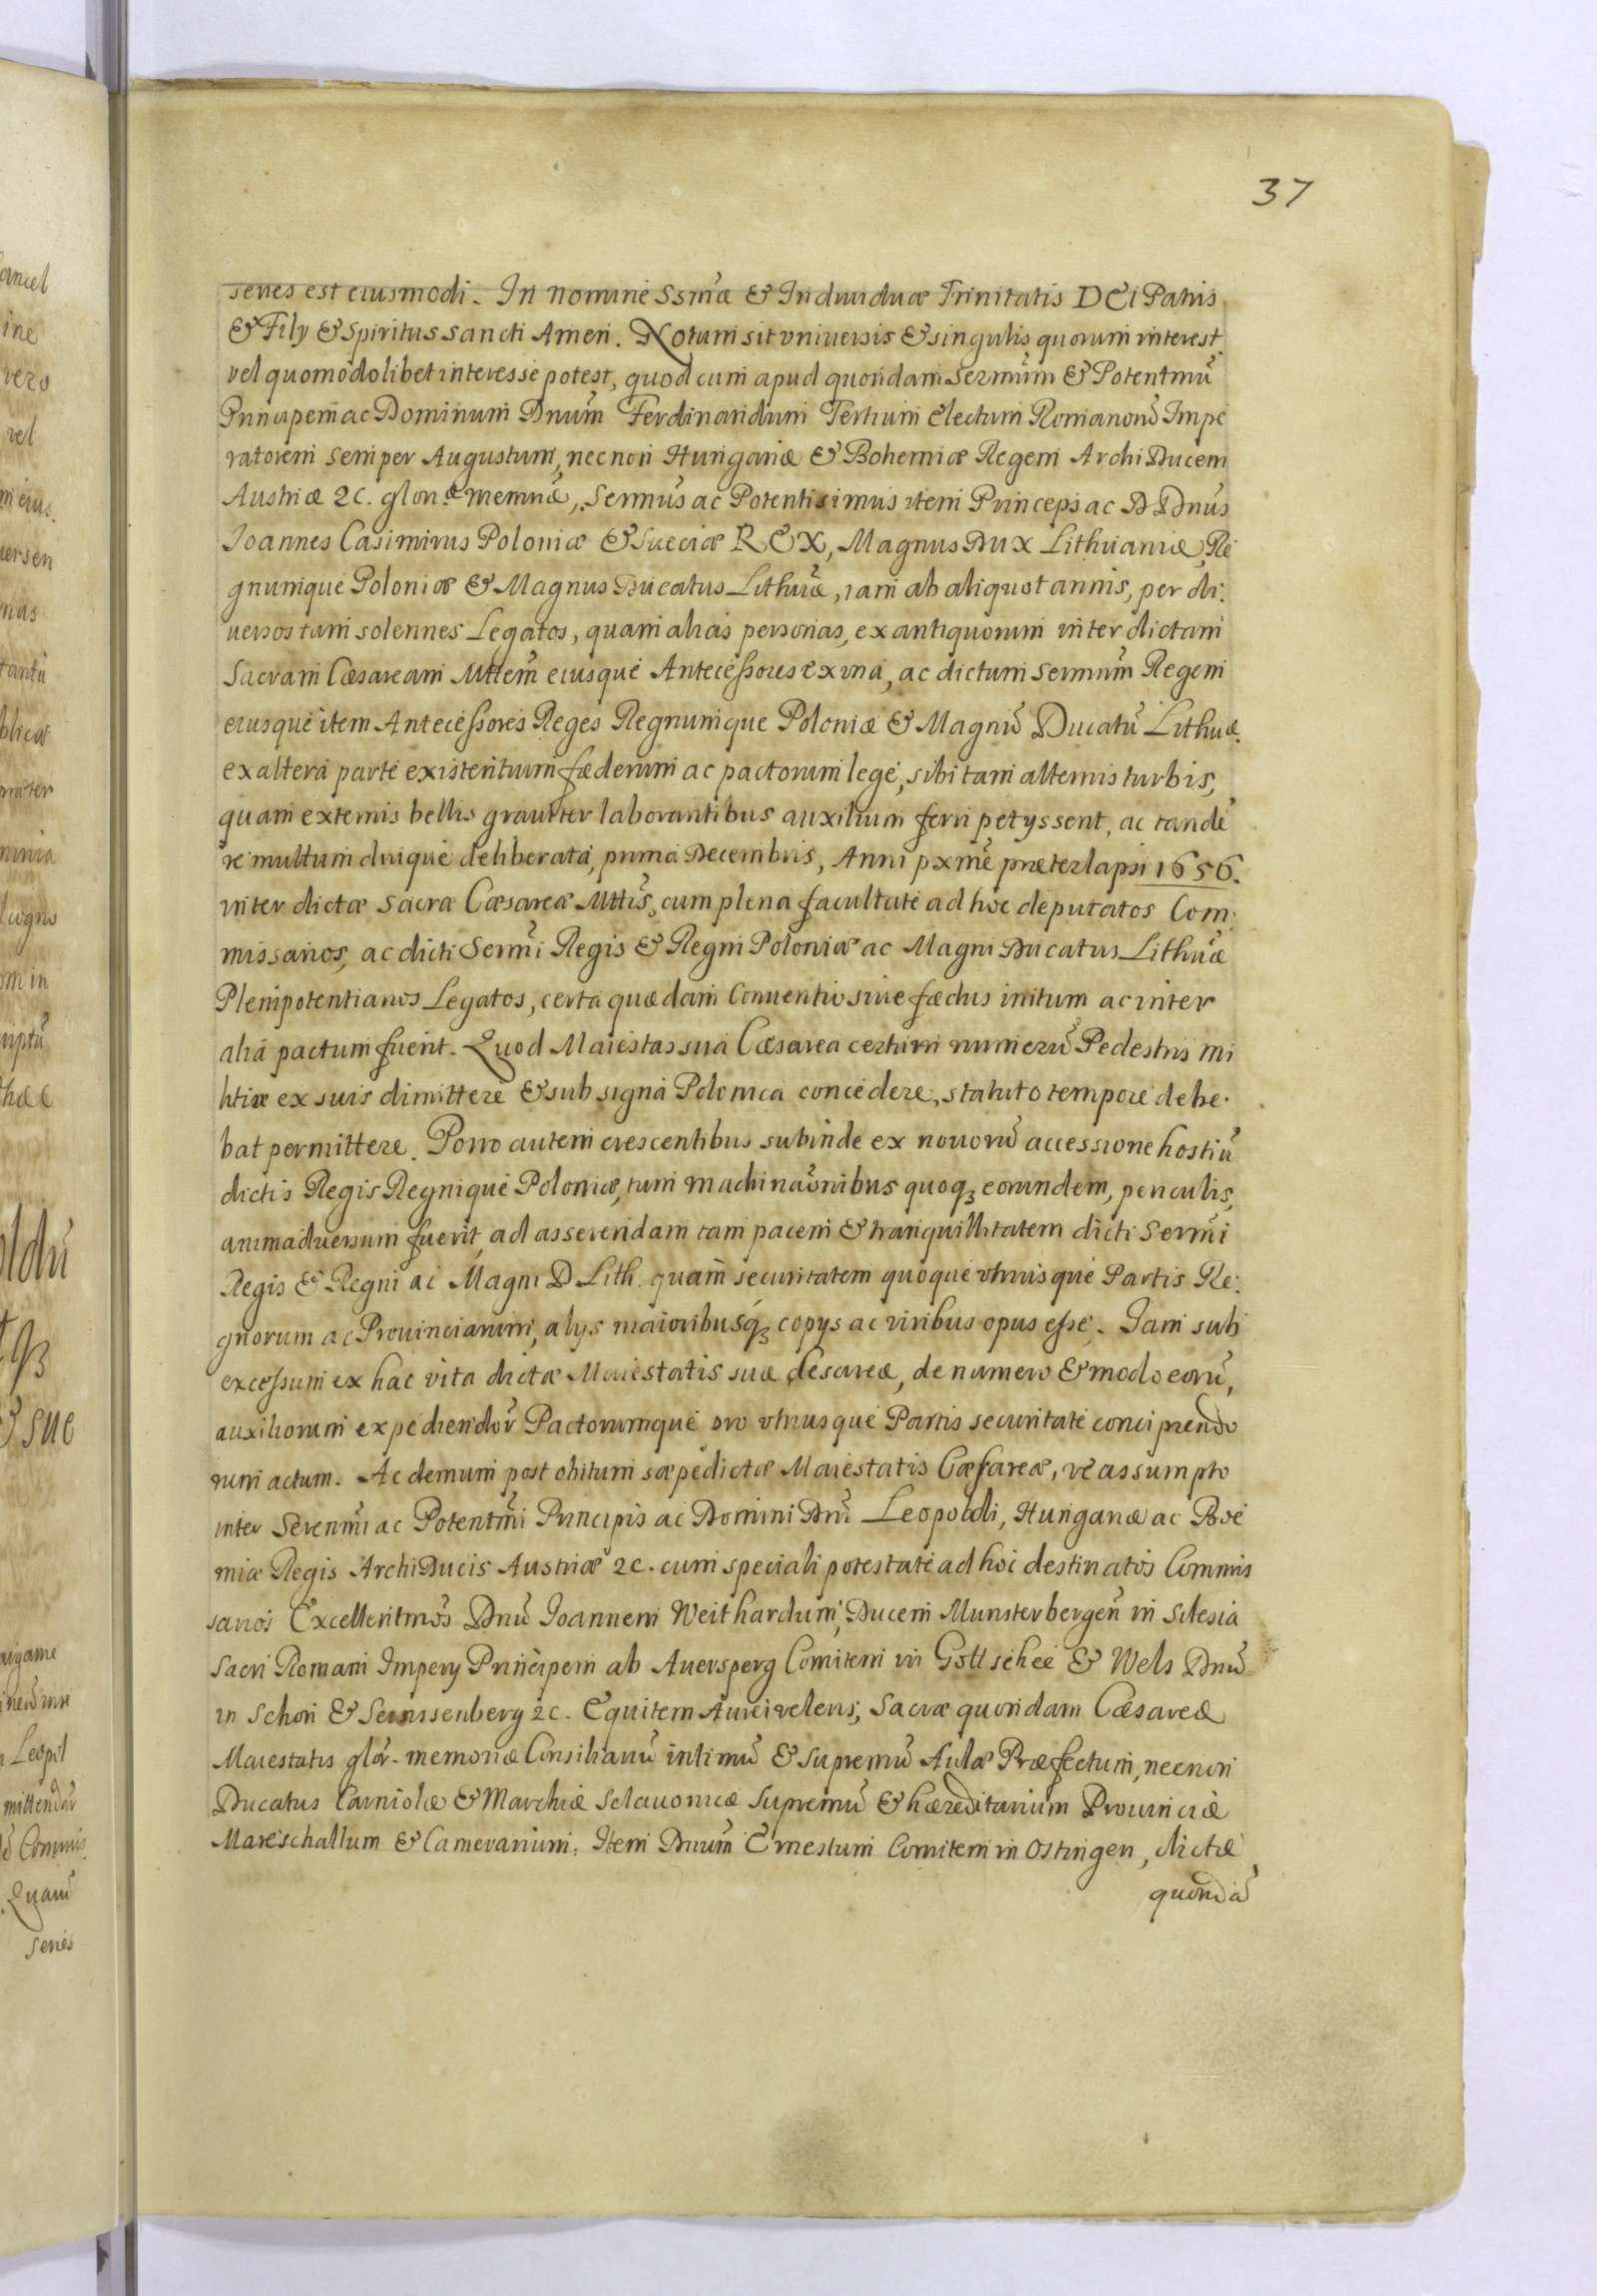 37
series est eiusmodi. In nomine Ssmæ & Individuæ Trinitatis DEI Patris
& Filÿ & Spiritus sancti Amen. Notum sit vniuersis & singulis quorum interest
vel quomodolibet interesse potest, quod cum apud quondam Sermum & Potentmū
Principem ac Dominum Dnum Ferdinandum Tertium Electum Romanorū Impe
ratorem semper Augustum, necnon Hungariæ & Bohemiæ Regem ArchiDucem
Austriæ 2c. gloriæ memriæ, Sermus ac Potentissimus item Princeps ac D Dnus
Joannes Casimirus Poloniæ & Sueciæ REX, Magnus Dux Lithuaniæ, Re
gnumque Poloniæ & Magnus Ducatus Lithuæ, iam ab aliquot annis, per di:
uersos tam solennes Legatos, quam alias personas, ex antiquorum inter dictam
Sacram Cæsaream Mttem eiusque Antecessores ex vna, ac dictum Sermum Regem
eiusque item Antecessores Reges Regnumque Poloniæ & Magnū Ducatū Lithuæ.
ex altera parte existentium fæderum ac pactorum lege, sibi tam alternis turbis,
quam externis bellis grauiter laborantibus auxilium ferri petÿssent, ac tandē
re multum diuque deliberata, prima Decembris, Anni pxme præterlapsi 1656.
inter dictæ Sacræ Cæsareæ Mttis, cum plena facultate ad hoc deputatos Com:
missarios, ac dicti Sermi Regis & Regni Poloniæ ac Magni Ducatus Lithuæ
Plenipotentiarios Legatos, certa quædam Conuentio siue fædus initum ac inter
alia pactum fuerit. Quod Maiestas sua Cæsarea certum numerū Pedestris mi
litiæ ex suis dimittere & sub signa Polonica concedere, statuto tempore debe.
bat permittere. Porro autem crescentibus subinde ex nouorū accessione hostiū
dictis Regis Regnique Poloniæ, tum machinaonibus quoq3 eorundem, periculis,
animaduersum fuerit, ad asserendam tam pacem & tranquillitatem dicti Sermi
Regis & Regni ac Magni D Lith. quam securitatem quoque vtriusque Partis Re:
gnorum ac Prouinciarum, alÿs maioribusq3 copÿs ac viribus opus esse. Iam sub
excessum ex hac vita dictæ Maiestatis suæ Cesareæ, de numero & modo eorū,
auxiliorum expediendor Pactorumque pro vtriusque Partis securitate concipiendo
rum actum. Ac demum post obitum sæpedictæ Maiestatis Cæsareæ, re assumpto
inter Serenmi ac Potentmi Principis ac Domini Dni Leopoldi, Hungariæ ac Boe
miæ Regis ArchiDucis Austriæ 2c. cum speciali potestate ad hoc destinatos Commis
sarios Excellentmos Dnū Joannem Weithardum, Ducem Munsterbergen in Silesia
Sacri Romani Imperÿ Principem ab Auersperg Comitem in Gottschee & Wels Dnū
in Schon & Seinssenberg 2c. Equitem Aurei veleris, Sacræ quondam Cæsareæ
Maiestatis glor. memoriæ Consiliariū intimū & supremū Aulæ Præfectum, necnon
Ducatus Carniolæ & Marchiæ Sclauonicæ Supremū & hæreditarium Prouinciæ
Mareschallum & Camerarium. Item Dnum Ernestum Comitem in Ottingen, dictæ
quondā